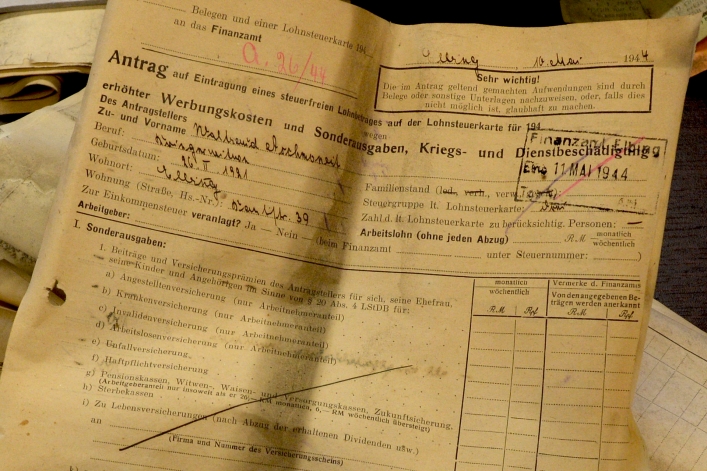 Belegen und einer Lohnsteuerkarte 194
an das Finanzamt
a. 26/44
Elbing, 10. Mai 1944
Sehr wichtig!
Die im Antrag geltend gemachten Aufwendungen sind durch
Belege oder sonstige Unterlagen nachzuweisen, oder, falls dies
nicht möglich ist, glaubhaft zu machen.
Antrag auf Eintragung eines steuerfreien Lohnbetrages auf der Lohnsteuerkarte für 194
wegen
erhöhter Werbungskosten und Sonderausgaben, Kriegs- und Dienstbeschädigung
Finanzamt Elbing
Eing. 11 MAI 1944
Des Antragstellers
Zu- und Vorname
Beruf:
Geburtsdatum: 26. II. 1921
Wohnort: Elbing
Wohnung (Straße, Hs.-Nr.): 39
Zur Einkommensteuer veranlagt? Ja — Nein — (beim Finanzamt unter Steuernummer: )
Arbeitgeber:
Familienstand (led., verh., verw.
Steuergruppe lt. Lohnsteuerkarte:
Zahl d. lt. Lohnsteuerkarte zu berücksichtig. Personen: —
Arbeitslohn (ohne jeden Abzug) R.M. monatlich
wöchentlich
I. Sonderausgaben:
1. Beiträge und Versicherungsprämien des Antragstellers für sich, seine Ehefrau,
seine Kinder und Angehörigen im Sinne von § 20 Abs. 4 LStDB für:
a) Angestelltenversicherung (nur Arbeitnehmeranteil)
b) Krankenversicherung (nur Arbeitnehmeranteil)
c) Invalidenversicherung (nur Arbeitnehmeranteil)
d) Arbeitslosenversicherung (nur Arbeitnehmeranteil)
e) Unfallversicherung
f) Haftpflichtversicherung
g) Pensionskassen, Witwen-, Waisen- und Versorgungskassen, Zukunftsicherung,
(Arbeitgeberanteil nur insoweit als er 26,— RM monatlich, 6,— RM wöchentlich übersteigt)
h) Sterbekassen
i) Zu Lebensversicherungen (nach Abzug der erhaltenen Dividenden usw.)
an
(Firma und Nummer des Versicherungsscheins)
monatlich
wöchentlich
R.M. Rpf.
Vermerke d. Finanzamts
Von den angegebenen Be-
trägen werden anerkannt
R.M. Rpf.